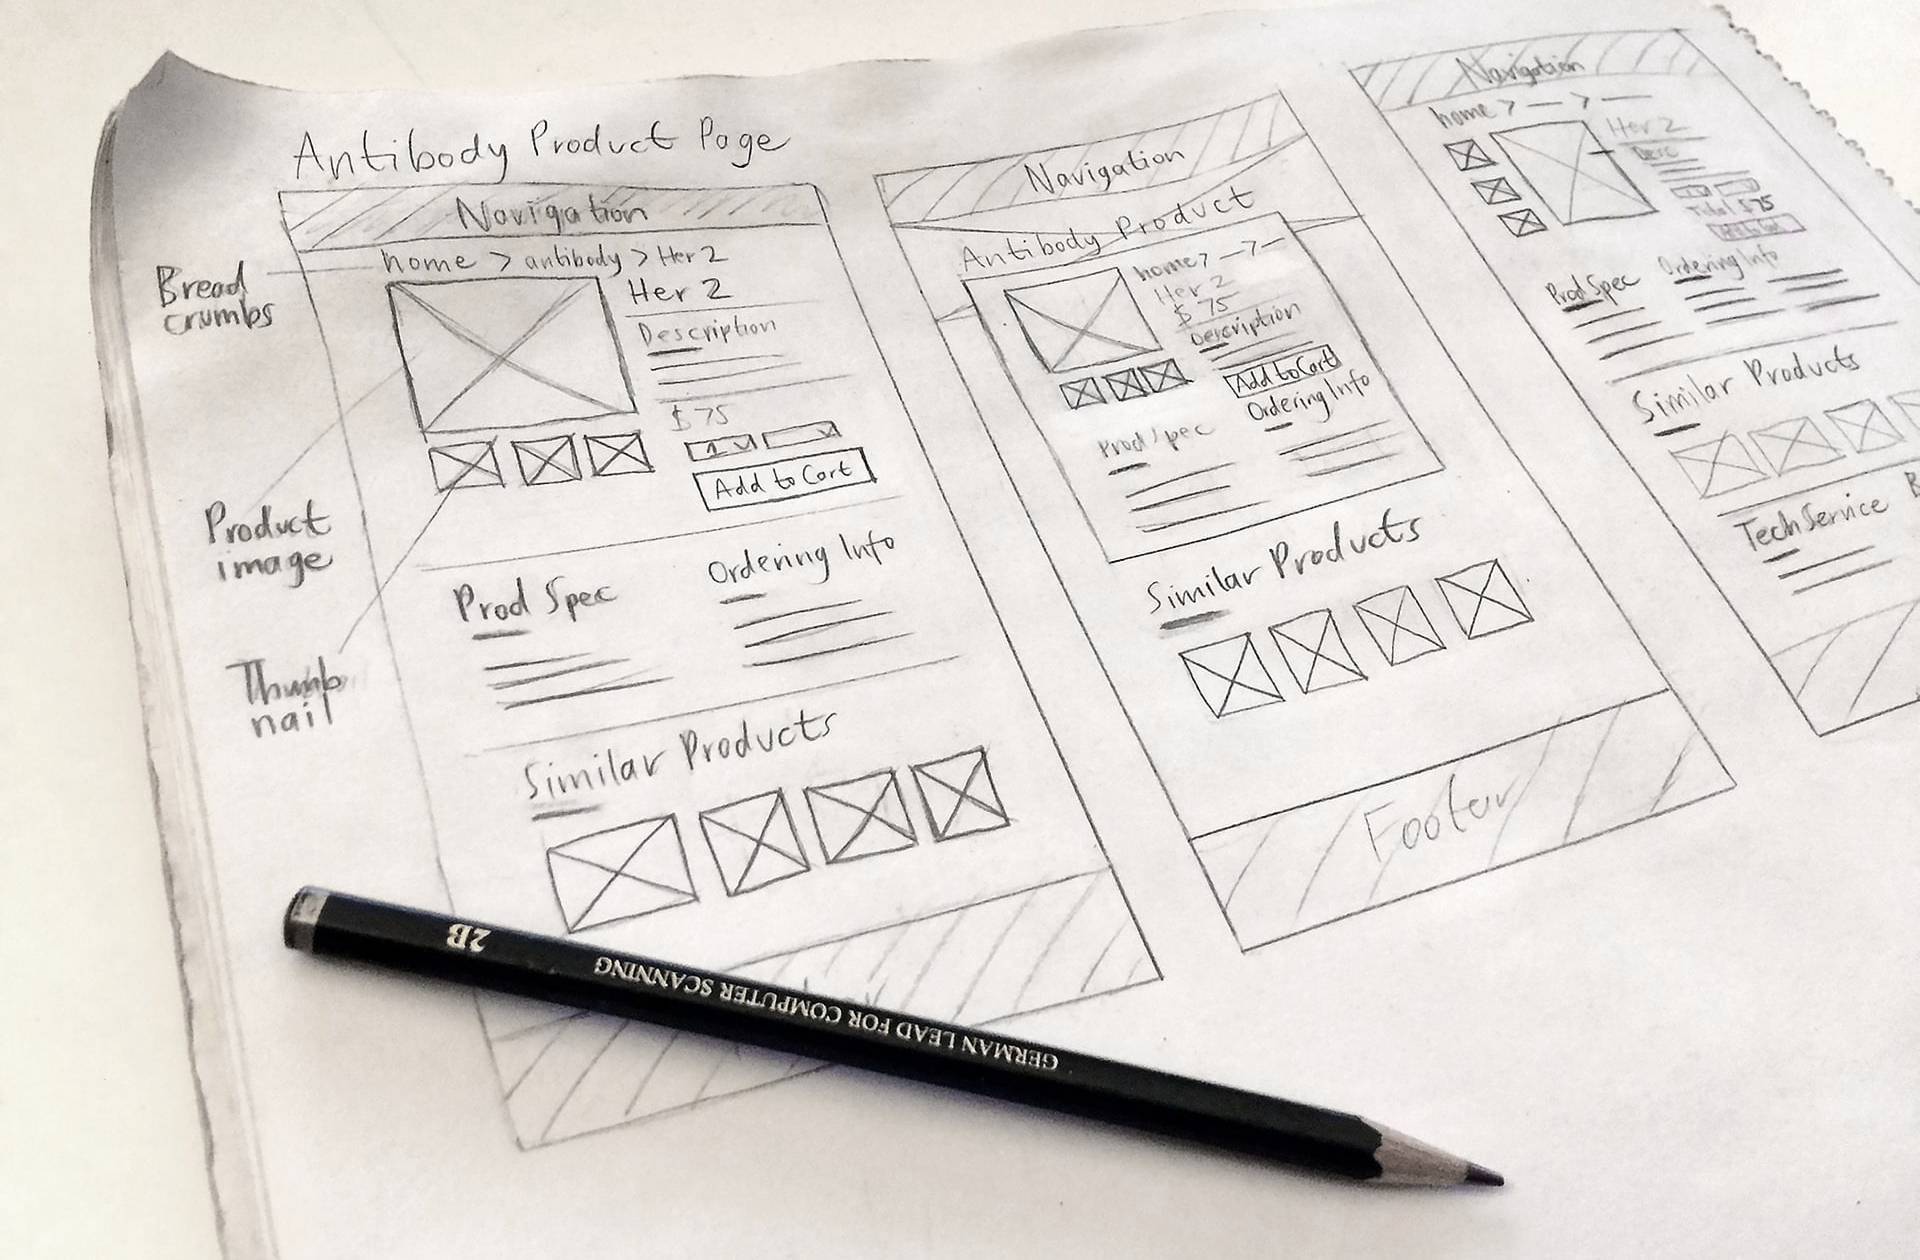 Antibody Product Page
Navigation
home > antibody > Her 2
Her 2
Description
$75
1
Add to Cart
Prod Spec
Ordering Info
Similar Products
Bread
crumbs
Product
image
Thumb
nail
Navigation
Antibody Product
home > — > —
Her 2
$75
Description
Add to Cart
Ordering Info
Prod Spec
Similar Products
Footer
Navigation
home > — > —
Her 2
Desc
Total $75
Prod Spec
Ordering Info
Similar Products
Tech Service
2B
GERMAN LEAD FOR COMPUTER SCANNING